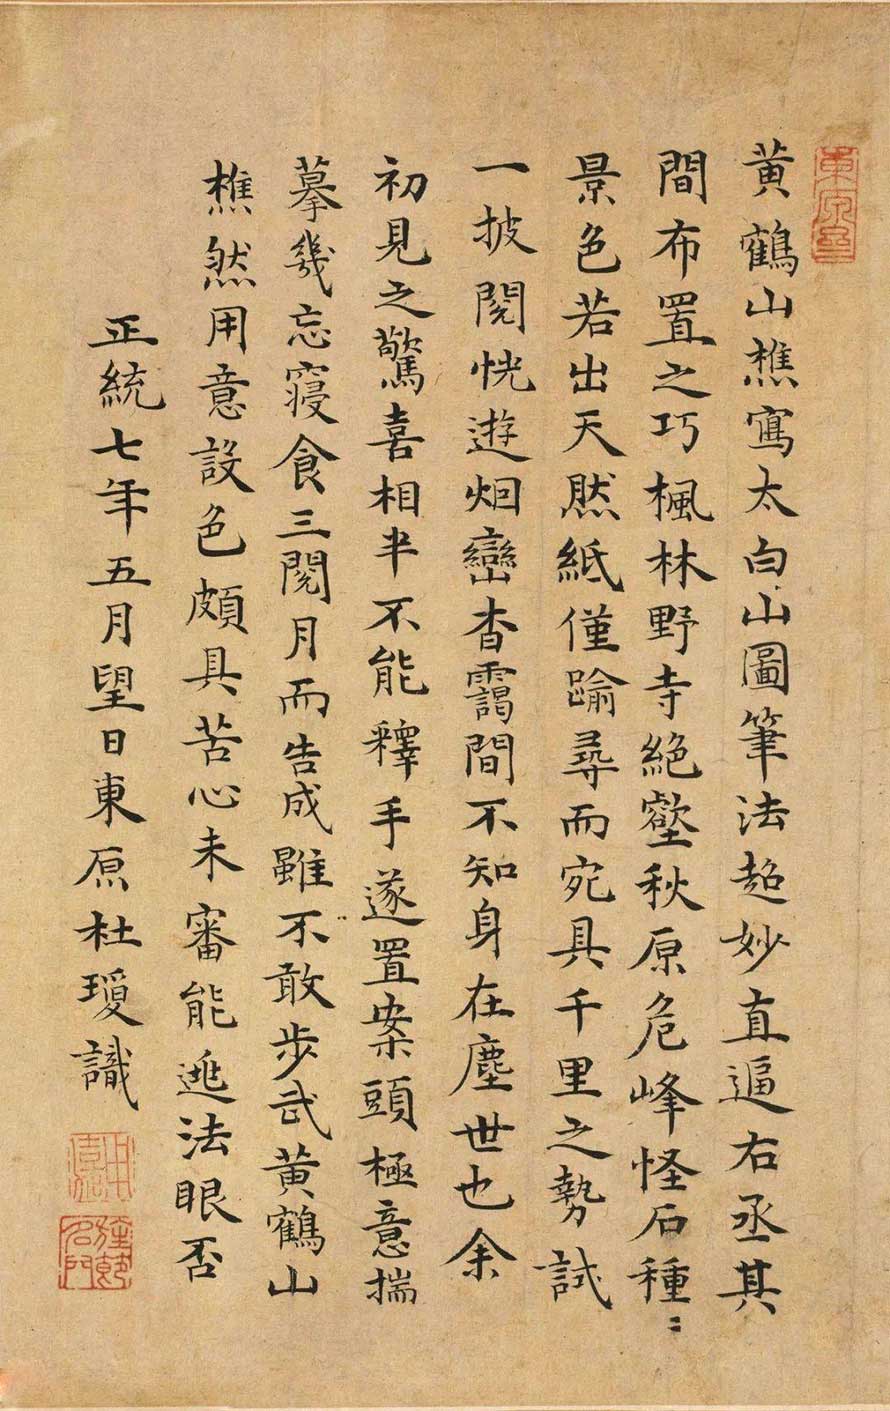 黃鶴山樵寫太白山圖筆法超妙直逼右丞其
間布置之巧楓林野寺絕壑秋原危峰怪石種〻
景色若出天然紙僅踰尋而宛具千里之勢試
一披閱恍遊烟巒杳靄間不知身在塵世也余
初見之驚喜相半不能釋手遂置案頭極意揣
摹幾忘寢食三閱月而告成雖不敢步武黃鶴山
樵然用意設色頗具苦心未審能逃法眼否
正統七年五月望日東原杜瓊識